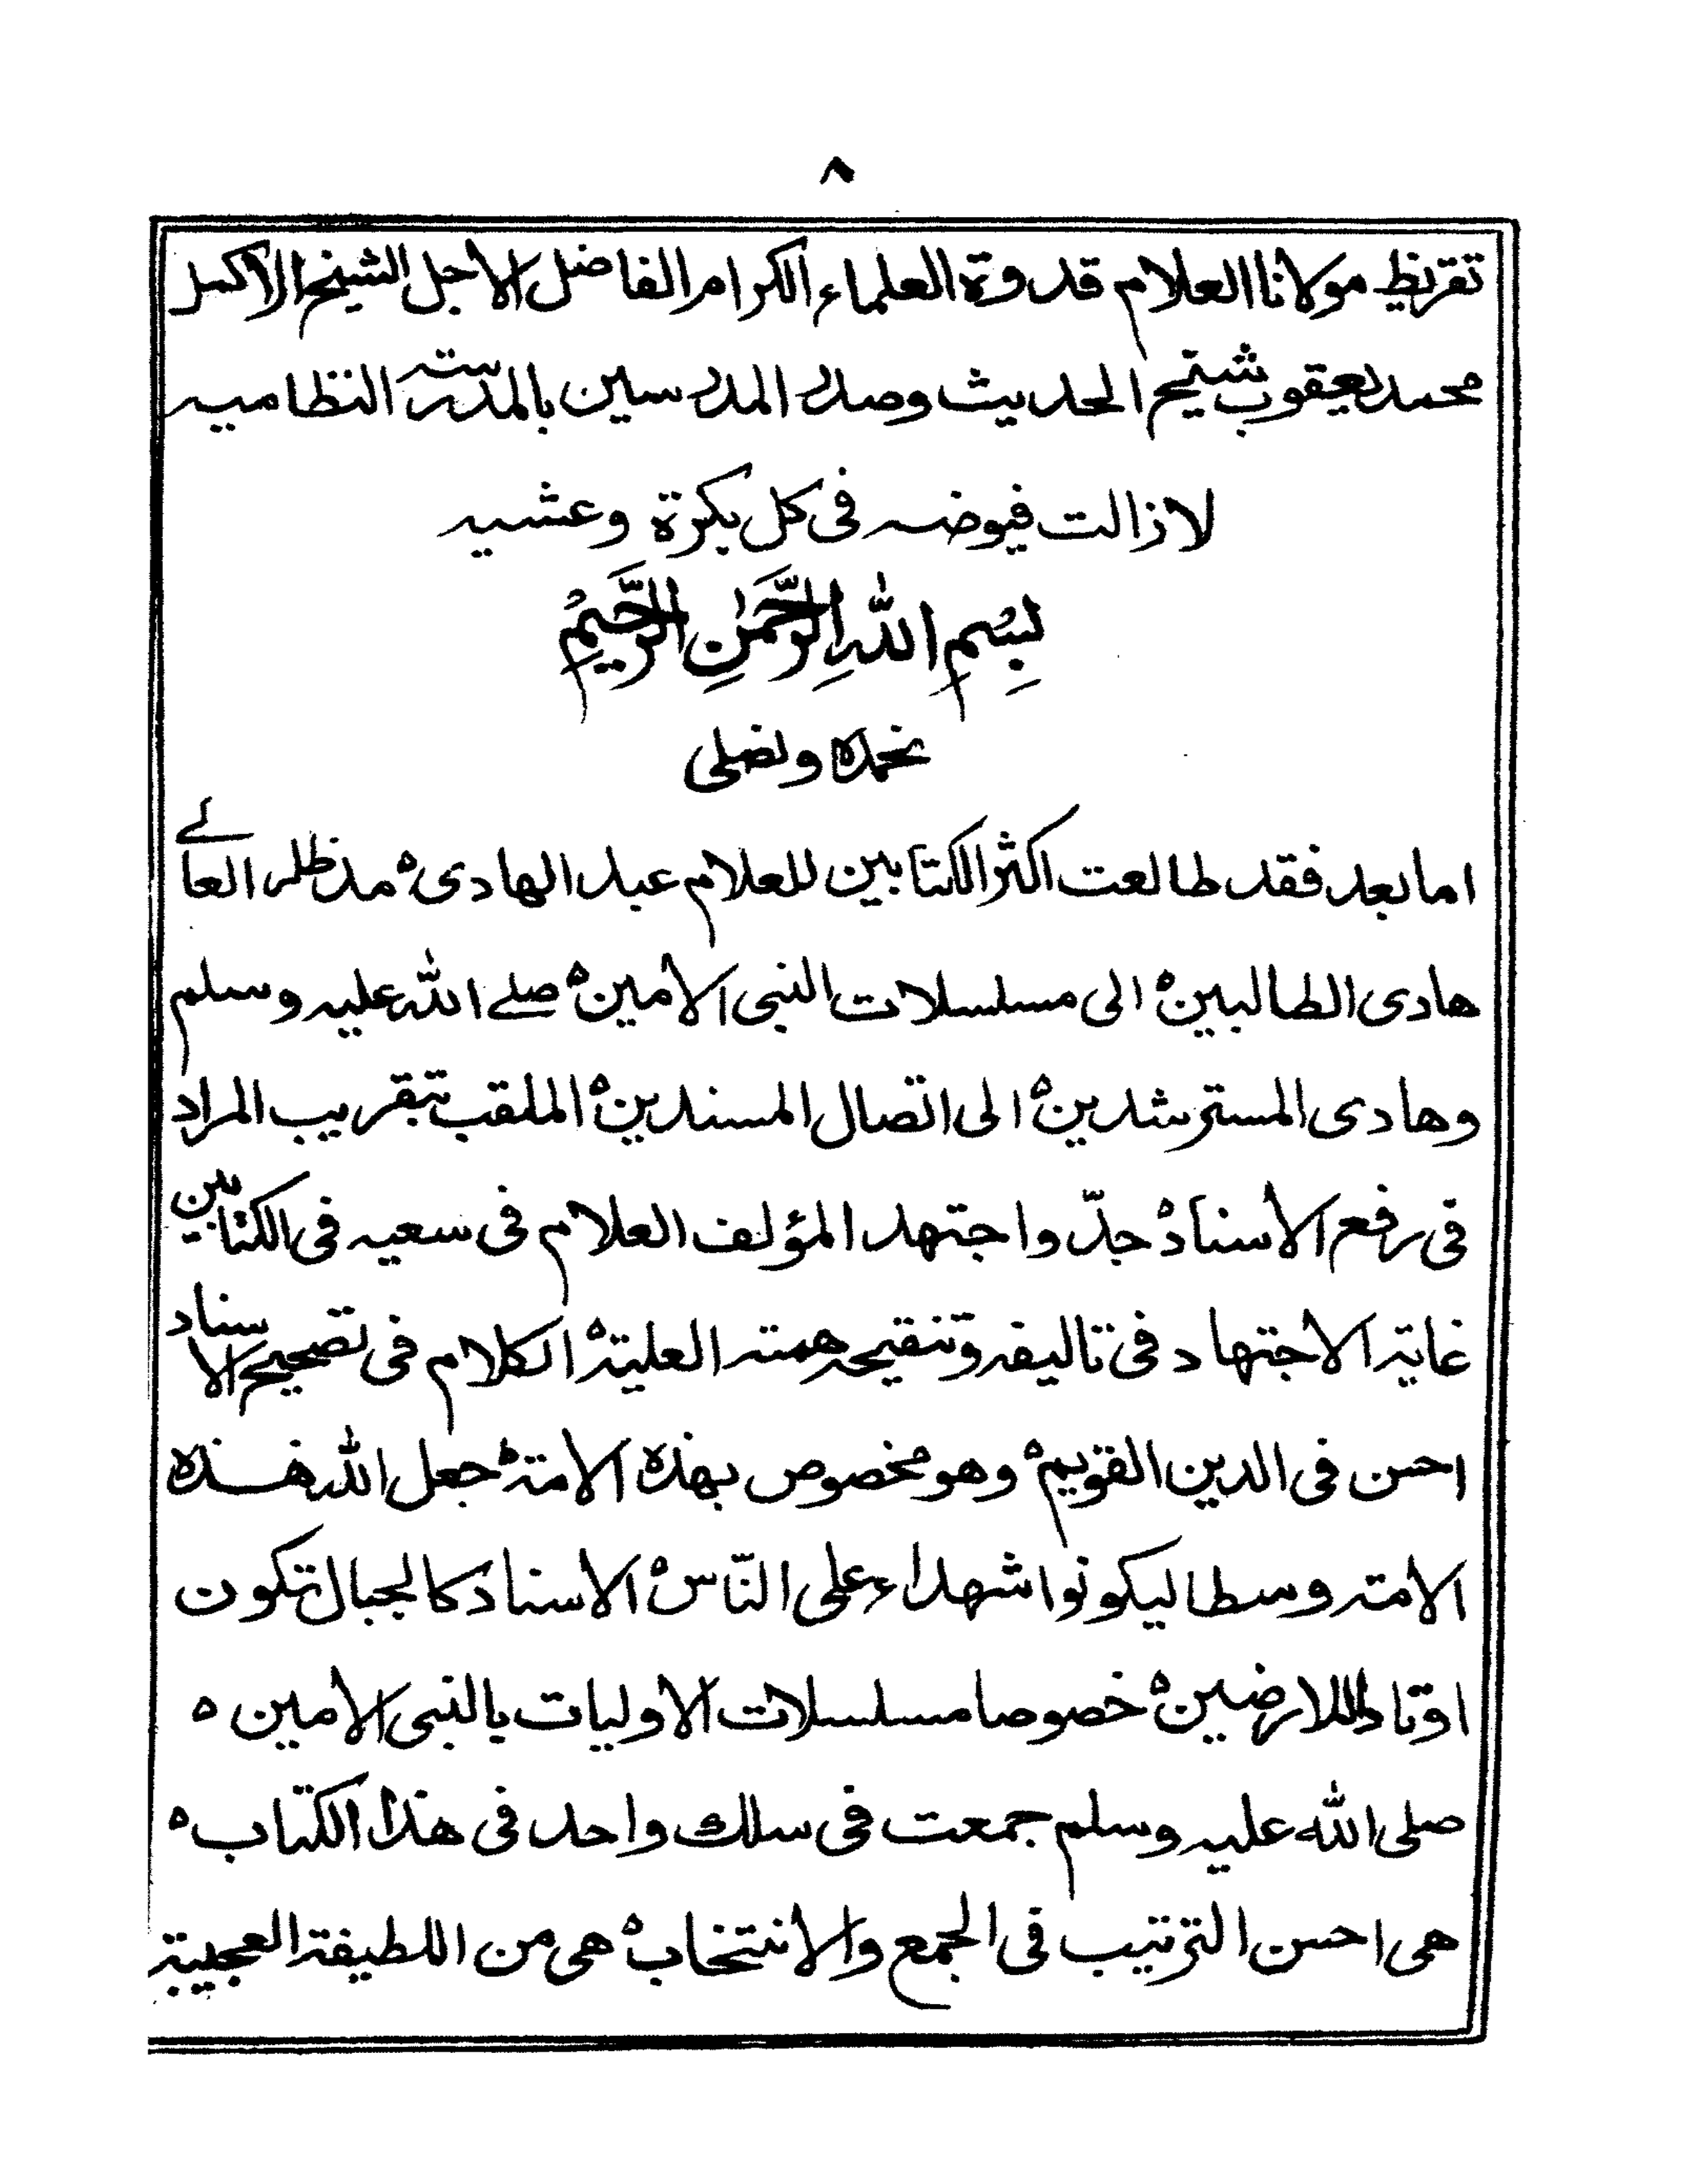 ٨
تقريظ مولانا العلام قدوة العلماء الكرام الفاضل الاجل الشيخ الاكمل
محمد يعقوب شيخ الحديث وصدر المدرسين بالمدرسته النظاميه
لا زالت فيوضه فى كل بكرة وعشيه
بِسْمِ اللّٰهِ الرَّحْمٰنِ الرَّحِيْمِ
نحمده ونصلى
اما بعد فقد طالعت اكثر الكتابين للعلام عبد الهادى ه مد ظله العالے
هادى الطالبين ه الى مسلسلات النبى الامين ه صلے اللّٰه عليه وسلم
وهادى المسترشدين ه الى اتصال المسندين ه الملقب بتقريب المراد
فى رفع الاسناد ه جدّ واجتهد المؤلف العلام فى سعيه فى الكتابين
غاية الاجتهاد فى تاليفه وتنقيحه همته العلية ه الكلام فى تصحيح الاسناد
احسن فى الدين القويم ه وهو مخصوص بهذه الامة ه جعل اللّٰه هذه
الامته وسطا ليكونوا شهداء على النّاس ه الاسناد كالجبال تكون
اوتادا للارضين ه خصوصا مسلسلات الاوليات بالنبى الامين ه
صلى اللّٰه عليه وسلم جمعت فى سلك واحد فى هذا الكتاب ه
هى احسن الترتيب فى الجمع والانتخاب ه هى من اللطيفة العجيبة